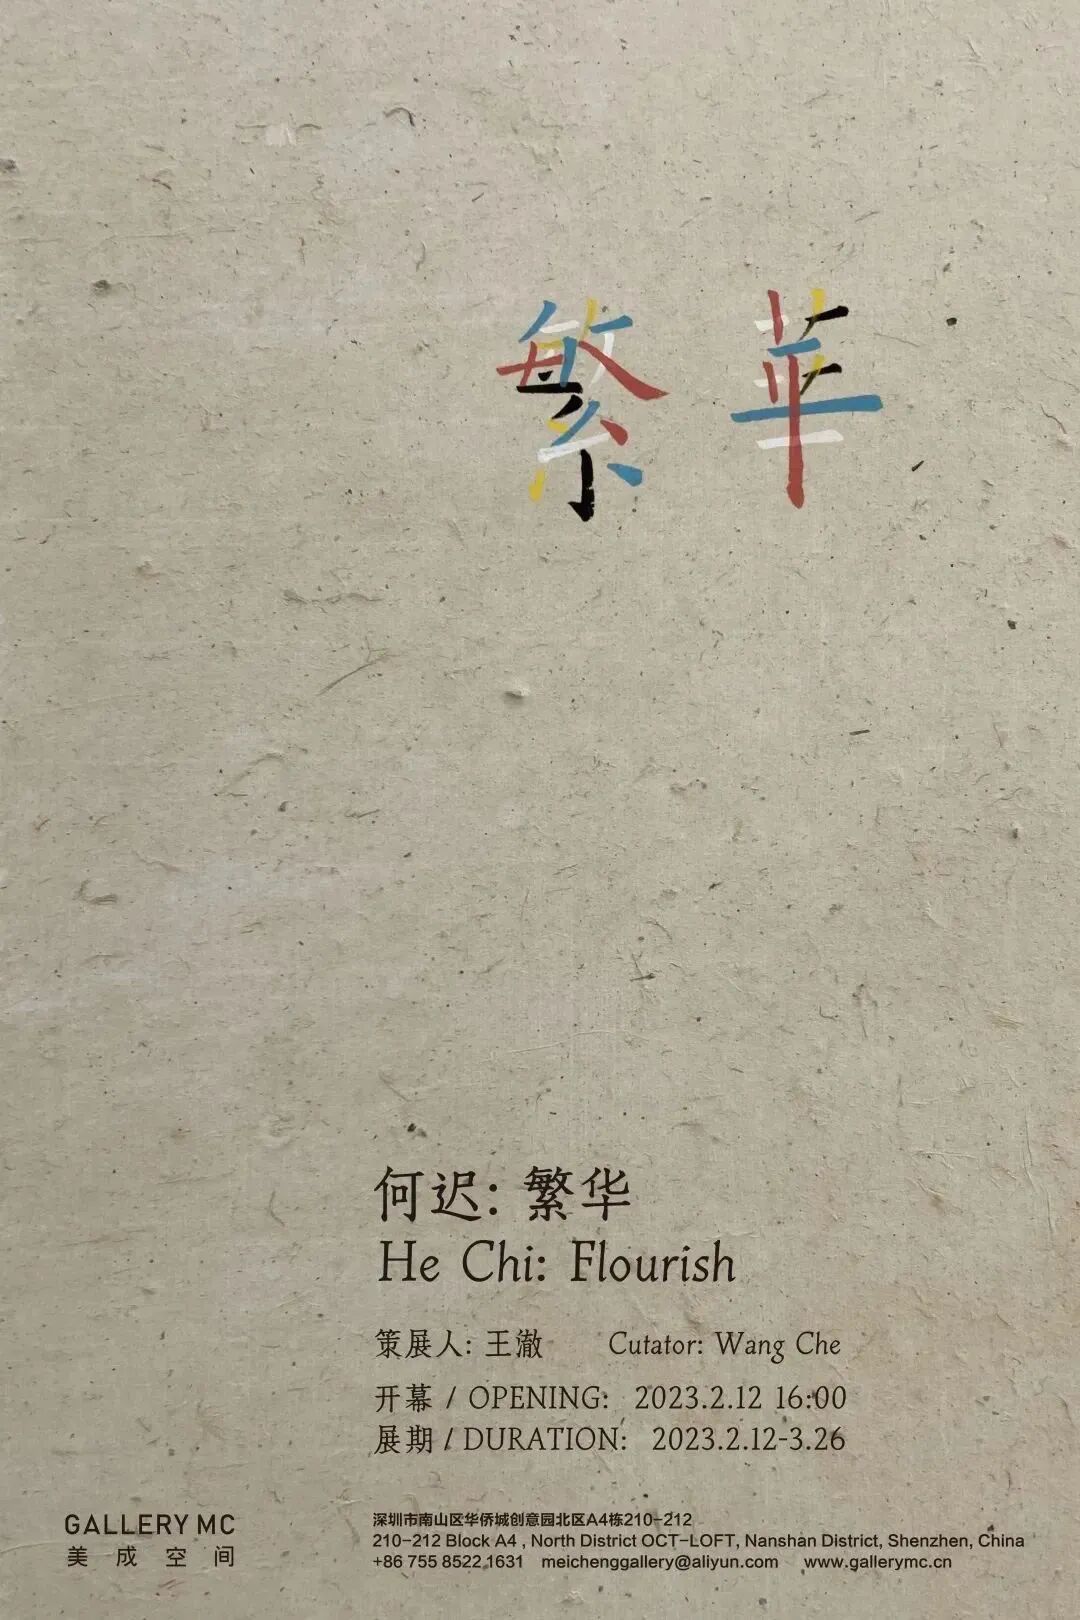 繁 華
何迟: 繁华
He Chi: Flourish
策展人: 王澈 Cutator: Wang Che
开幕 / OPENING: 2023.2.12 16:00
展期 / DURATION: 2023.2.12-3.26
GALLERY MC
美成空间
深圳市南山区华侨城创意园北区A4栋210-212
210-212 Block A4 , North District OCT-LOFT, Nanshan District, Shenzhen, China
+86 755 8522 1631 meichenggallery@aliyun.com www.gallerymc.cn